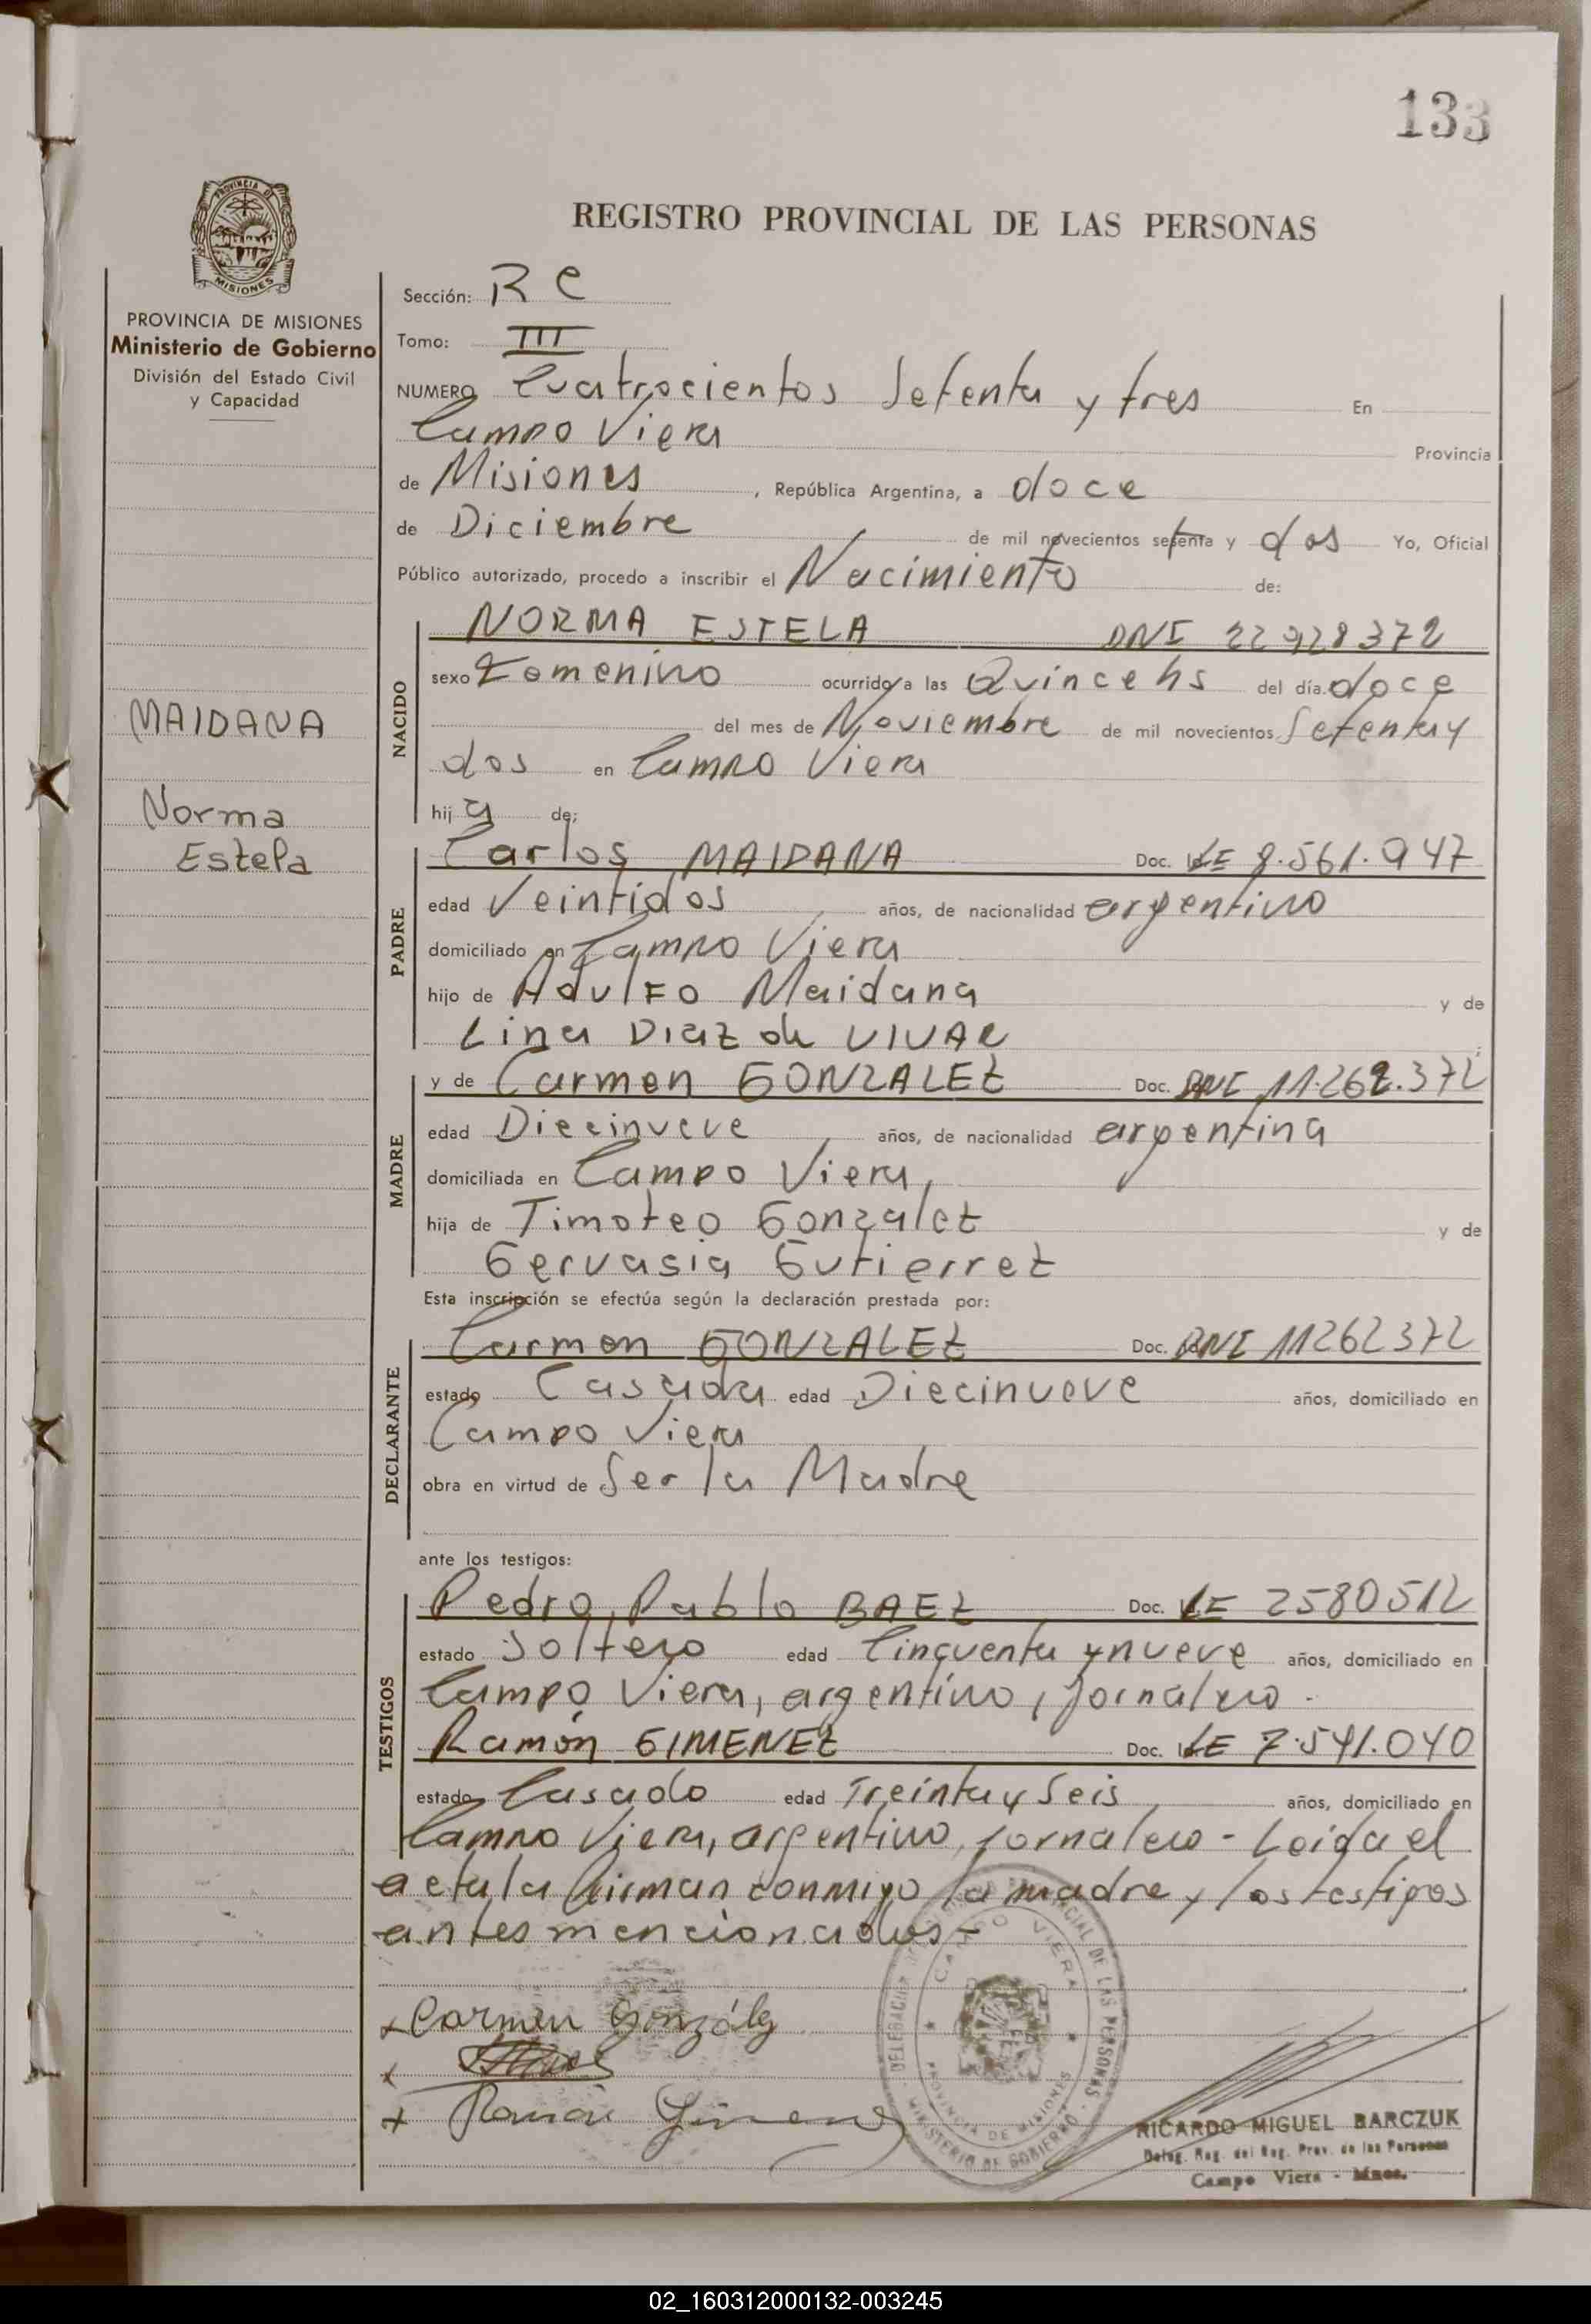 133
PROVINCIA DE
MISIONES
REGISTRO PROVINCIAL DE LAS PERSONAS
PROVINCIA DE MISIONES
Ministerio de Gobierno
División del Estado Civil
y Capacidad
MAIDANA
Norma
Estela
Sección: R C
Tomo: III
NUMERO Cuatrocientos Setenta y tres En
Campo Viera Provincia
de Misiones, República Argentina, a doce
de Diciembre de mil novecientos setenta y dos Yo, Oficial
Público autorizado, procedo a inscribir el Nacimiento de:
NACIDO
NORMA ESTELA DNI 22928372
sexo Femenino ocurrido a las Quince hs del día doce
del mes de Noviembre de mil novecientos Setenta y
dos en Campo Viera
hij a de:
PADRE
Carlos MAIDANA Doc. LE 8.561.947
edad Veintidos años, de nacionalidad argentino
domiciliado en Campo Viera
hijo de Adulfo Maidana y de
Lina Diaz de VIVAR
MADRE
y de Carmen GONZALEZ Doc. DNI 11.262.372
edad Diecinueve años, de nacionalidad argentina
domiciliada en Campo Viera,
hija de Timoteo Gonzalez y de
Gervasia Gutierrez
Esta inscripción se efectúa según la declaración prestada por:
DECLARANTE
Carmen GONZALEZ Doc. DNI 11262372
estado Casada edad Diecinueve años, domiciliado en
Campo Viera
obra en virtud de Ser la Madre
ante los testigos:
TESTIGOS
Pedro Pablo BAEZ Doc. LE 2580512
estado Soltero edad Cincuenta y nueve años, domiciliado en
Campo Viera, argentino, jornalero.
Ramón GIMENEZ Doc. LE 7.541.040
estado Casado edad Treinta y Seis años, domiciliado en
Campo Viera, argentino, jornalero - Leida el
acta la firman conmigo la madre y los testigos
antes mencionados-
x Carmen Gonzáles
x
x Ramón Gimenez
DELEGACION PROVINCIAL DE LAS PERSONAS
CAMPO VIERA
PROVINCIA DE MISIONES
MINISTERIO DE GOBIERNO
RICARDO MIGUEL BARCZUK
Deleg. Reg. del Reg. Prov. de las Personas
Campo Viera - Mnes.
02_160312000132-003245